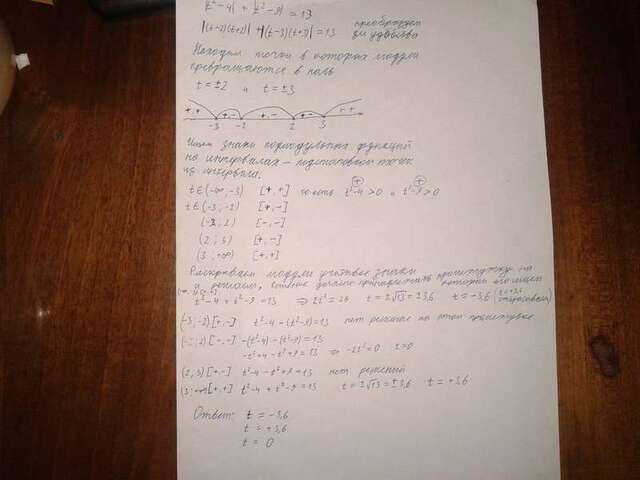 |t²-4| + |t²-9| = 13
|(t-2)(t+2)| + |(t-3)(t+3)| = 13 преобразуем для удобства
Находим точки в которых модули
превращаются в ноль
t = ±2 и t = ±3
+ + + - + - + - + +
-3 -2 2 3
Ищем знаки подмодульных функций
на интервалах – подстановкой точек
из интервала.
t ∈ (-∞, -3) [+, +] то есть t²-4 > 0 и t²-9 > 0
t ∈ (-3; -2) [+, -]
(-2; 2) [-, -]
(2; 3) [+, -]
(3; +∞) [+, +]
Раскрываем модули учитывая знаки
и решаем, решение должно принадлежать промежутку на котором его ищем
t² - 4 + t² - 9 = 13 ⇒ 2t² = 26 t = ±√13 = ±3,6 t = -3,6 (t = +3,6 отбрасываем)
(-3; -2) [+, -] t² - 4 - (t² - 9) = 13 нет решения на этом промежутке
(-2; 2) [-, -] -(t² - 4) - (t² - 9) = 13
-t² + 4 - t² + 9 = 13 ⇒ -2t² = 0 t = 0
(2; 3) [+, -] t² - 4 - t² + 9 = 13 нет решений
(3; +∞) [+, +] t² - 4 + t² - 9 = 13 t = ±√13 = ±3,6 t = +3,6
Ответ: t = -3,6
t = +3,6
t = 0